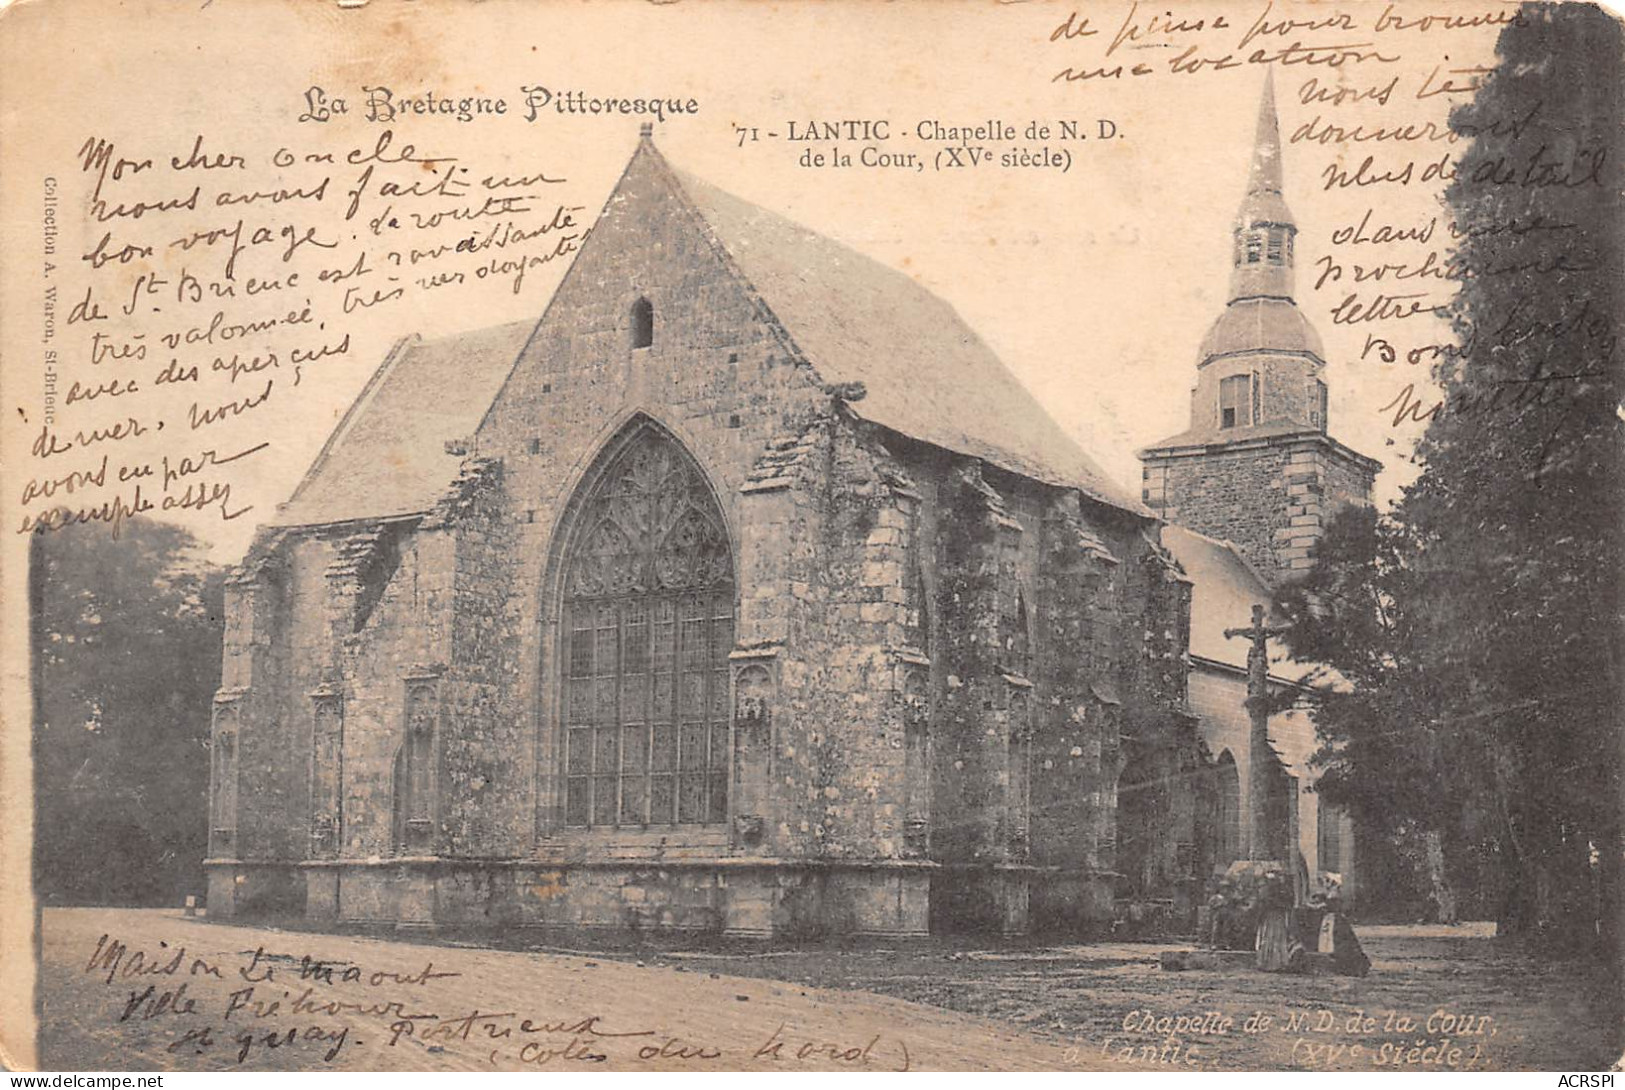 La Bretagne Pittoresque
71 - LANTIC - Chapelle de N. D.
de la Cour, (XVe siècle)
Collection A. Waron, St-Brieuc
Mon cher oncle
nous avons fait un
bon voyage. La route
de St. Brieuc est ravissante
très valonnée, très verdoyante
avec des aperçus
de mer, nous
avons eu par
exemple assez
de peine pour trouver
une location
nous te
donnerons
plus de détail
dans une
prochaine
lettre
Bons
Maison Le Maout
Ville Préhour
St Quay. Portrieux
(Côtes du Nord)
Chapelle de N.D. de la Cour,
à Lantic. (XVe Siècle).
ACRSPI